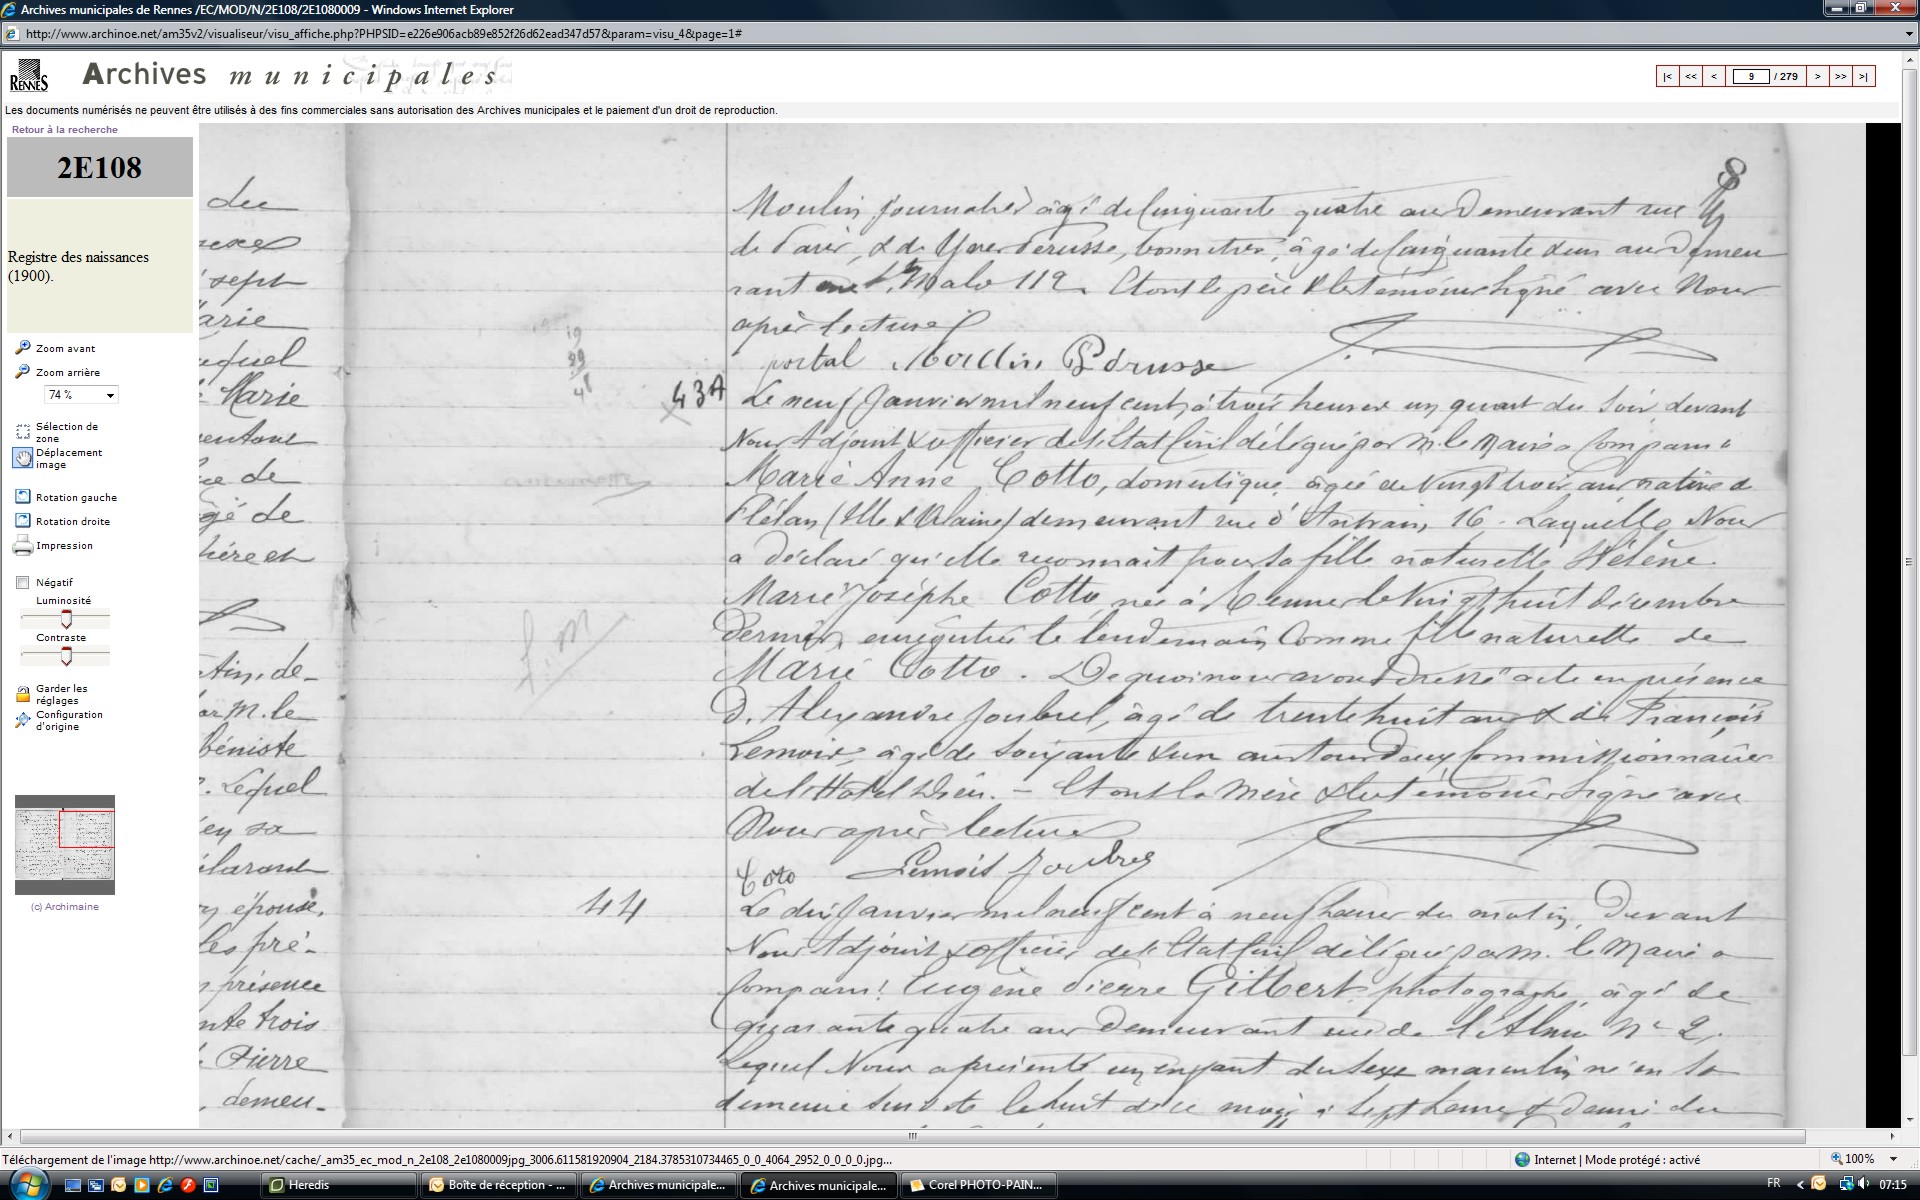 Archives municipales de Rennes /EC/MOD/N/2E108/2E1080009 - Windows Internet Explorer
http://www.archinoe.net/am35v2/visualiseur/visu_affiche.php?PHPSID=e226e906acb89e852f26d62ead347d57&param=visu_4&page=1#
RENNES
Archives municipales
|< << < 9 / 279 > >> >|
Les documents numérisés ne peuvent être utilisés à des fins commerciales sans autorisation des Archives municipales et le paiement d'un droit de reproduction.
Retour à la recherche
2E108
Registre des naissances
(1900).
Zoom avant
Zoom arrière
74 %
Sélection de
zone
Déplacement
image
Rotation gauche
Rotation droite
Impression
Négatif
Luminosité
Contraste
Garder les
réglages
Configuration
d'origine
(c) Archimaine
du
sexe
sept
arie
equel
Marie
ue de
gé de
ière et
tin, de-
ar M. le
béniste
. Lequel
en sa
y épouse,
les pré-
présence
nte trois
Pierre
, demeu-
8
Moulin, journalier âgé de cinquante quatre ans demeurant rue
de Paris, & de Pedrusse, âgé de cinquante & un ans demeu
rant rue St Malo 112. Et ont le père & les témoins signé avec Nous
après lecture
portal Moulin Pedrusse
43A
Le neuf Janvier mil neuf cent, à trois heures un quart du soir devant
Nous Adjoint & officier de l'Etat Civil délégué par M. le Maire a comparu
Marie Anne Cotto, domestique, âgée de vingt trois ans native de
Plélan (Ille & Vilaine) demeurant rue d'Antrain, 16. Laquelle Nous
a déclaré qu'elle reconnait pour sa fille naturelle Hélène
Marie Josèphe Cotto née à Rennes le vingt huit décembre
dernier, enregistrée le lendemain comme fille naturelle de
Marie Cotto. De quoi nous avons dressé acte en présence
d'Alexandre Joubrel, âgé de trente huit ans & de François
Lemoix, âgé de soixante & un ans tous deux commissionnaires
de l'Hôtel Dieu. - Et ont la mère & les témoins signé avec
Nous après lecture
Coto Lemoix Joubrel
44
Le dix Janvier mil neuf cent à neuf heures du matin, Devant
Nous Adjoint & officier de l'Etat Civil délégué par M. le Maire a
comparu Eugène Pierre Gilbert photographe, âgé de
quarante quatre ans demeurant rue de l'Alma No 2.
Lequel Nous a présenté un enfant du sexe masculin né en sa
demeure le huit de ce mois à sept heures & demi du
Téléchargement de l'image http://www.archinoe.net/cache/_am35_ec_mod_n_2e108_2e1080009jpg_3006.611581920904_2184.3785310734465_0_0_4064_2952_0_0_0_0.jpg...
Internet | Mode protégé : activé
100%
Heredis
Boîte de réception - ...
Archives municipale...
Archives municipale...
Corel PHOTO-PAIN...
FR
07:15